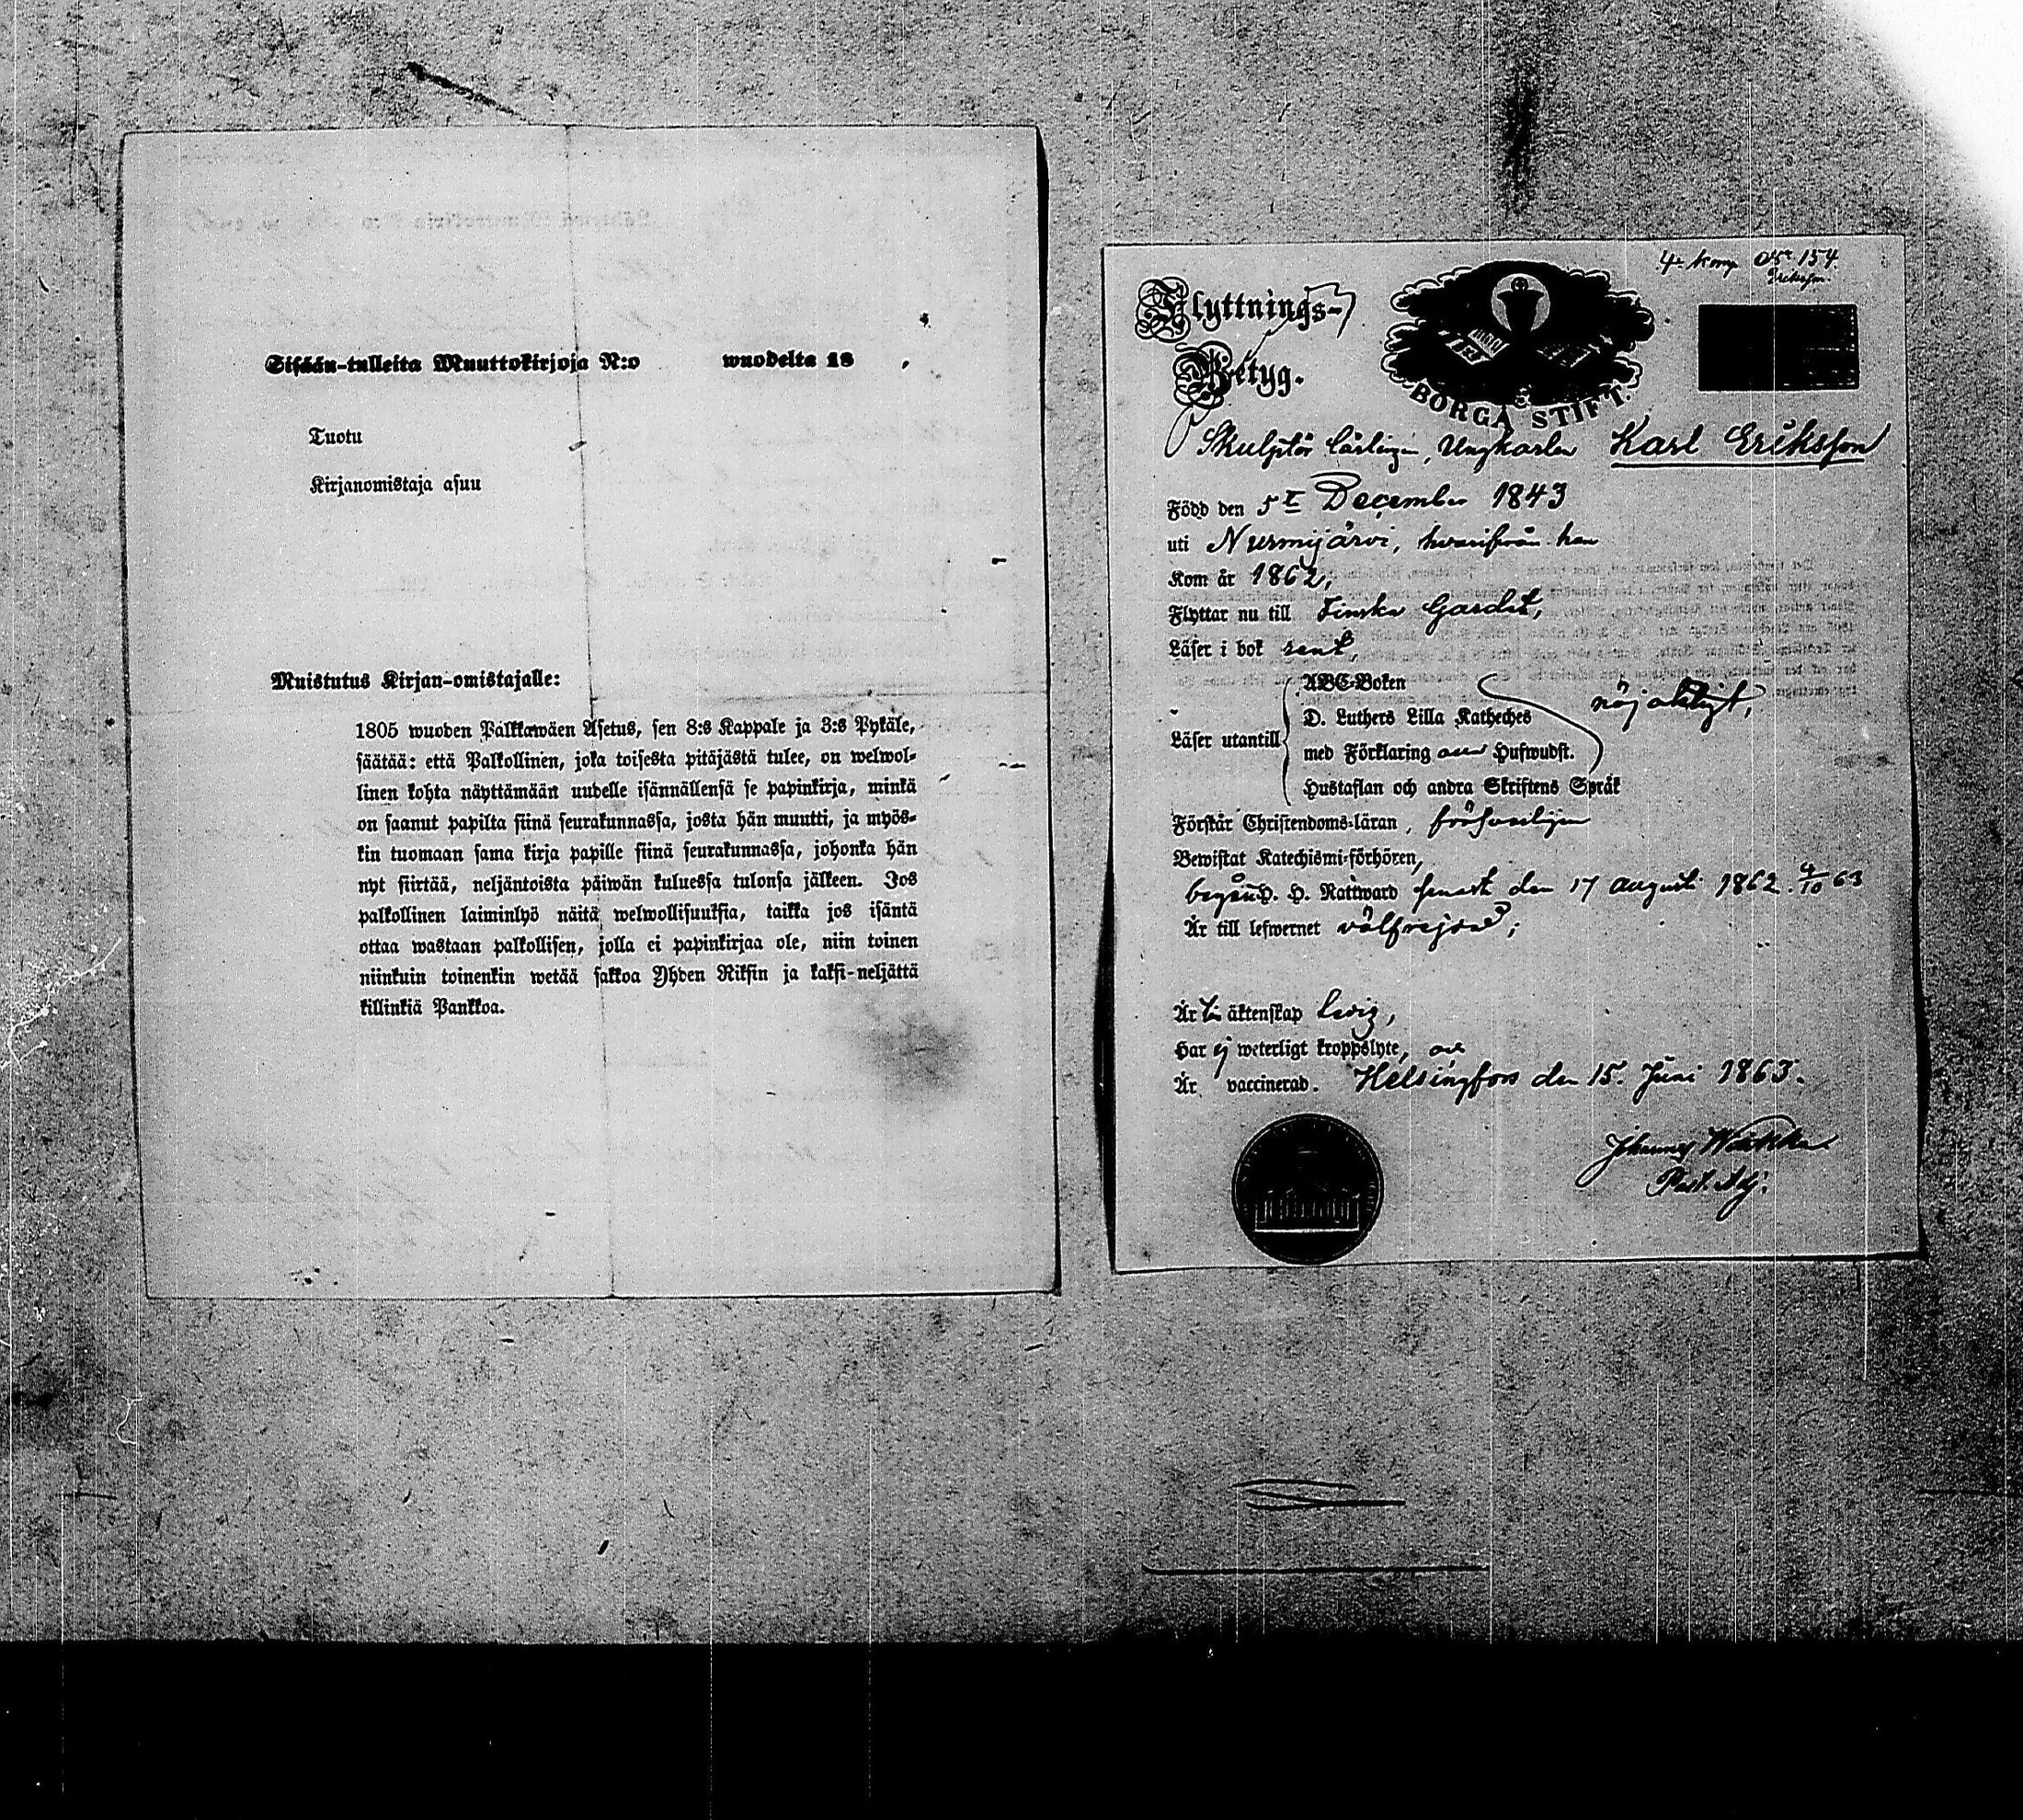 Sisään-tulleita Muuttokirjoja N:o wuodelta 18 .
Tuotu
Kirjanomistaja asuu
Muistutus Kirjan-omistajalle:
1805 wuoden Palkkawäen Asetus, sen 8:s Kappale ja 3:s Pykäle,
säätää: että Palkollinen, joka toisesta pitäjästä tulee, on welwol-
linen kohta näyttämään uudelle isännällensä se papinkirja, minkä
on saanut papilta siinä seurakunnassa, josta hän muutti, ja myös-
kin tuomaan sama kirja papille siinä seurakunnassa, johonka hän
nyt siirtää, neljäntoista päiwän kuluessa tulonsa jälkeen. Jos
palkollinen laiminlyö näitä welwollisuuksia, taikka jos isäntä
ottaa wastaan palkollisen, jolla ei papinkirjaa ole, niin toinen
niinkuin toinenkin wetää sakkoa Yhden Riksin ja kaksi-neljättä
killinkiä Pankkoa.
4e komp 154.
Eriksson.
Flyttnings-
Betyg.
BORGÅ STIFT.
Skulptör Lärlingen, Ungkarlen Karl Eriksson
Född den 5te December 1843
uti Nurmijärvi, hvarifrån han
Kom år 1862,
Flyttar nu till Finska Gardet,
Läser i bok rent,
Läser utantill
ABC-Boken
D. Luthers Lilla Katheches
med Förklaring Hufwudst.
Hustaflan och andra Skriftens Språk
nöjaktigt,
Förstår Christendoms-läran, försvarligen
Bewistat Katechismi-förhören,
begått H. H. Nattward senast den 17 augusti 1862. 4/10 63
Är till lefwernet välfrejdad;
Är till äktenskap ledig,
Har ej weterligt kroppslyte, och
Är vaccinerad. Helsingfors den 15. Juni 1863.
Johannes
Past. Adj.